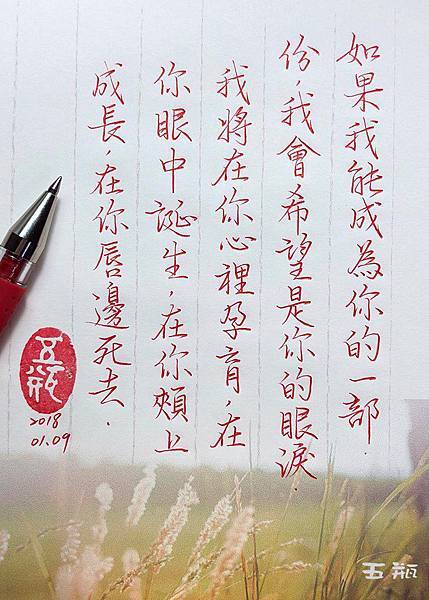 如果我能成為你的一部.
份,我會希望是你的眼淚.
我將在你心裡孕育,在
你眼中誕生,在你頰上
成長,在你唇邊死去.
五瓶
2018
01.09
五瓶